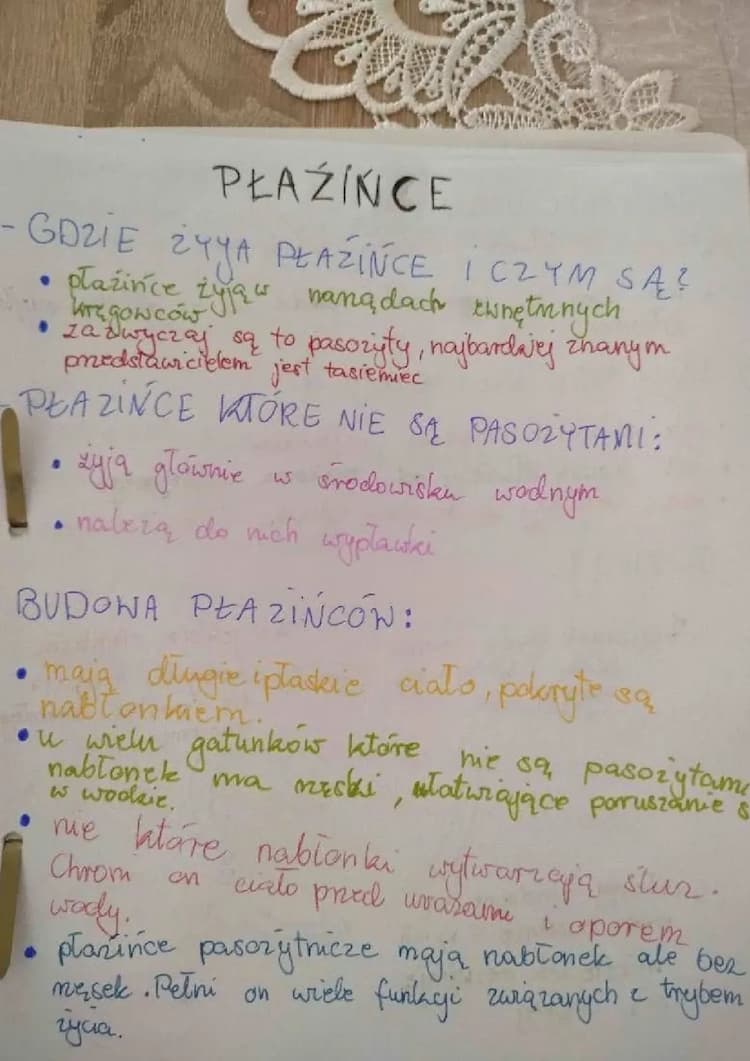 PŁAŹIŃCE
- GDZIE ŻYYA PŁAŹIŃCE I CZYM SĄ?
• płaźińce żyją w narządach wewnętrznych
kręgowców
• zazwyczaj są to pasożyty, najbardziej znanym
przedstawicielem jest tasiemiec
- PŁAZIŃCE KTÓRE NIE SĄ PASOŻYTAMI:
• żyją głównie w środowisku wodnym
• należą do nich wypławki
BUDOWA PŁAZIŃCÓW:
• mają długie i płaskie ciało, pokryte są
nabłonkiem.
• u wielu gatunków które nie są pasożytami
nabłonek ma rzęski, ułatwiające poruszanie s
w wodzie.
• nie które nabłonki wytwarzają śluz.
Chroni on ciało przed urazami i oporem
wody.
• płazińce pasożytnicze mają nabłonek ale bez
rzęsek. Pełni on wiele funkcji związanych z trybem
życia.